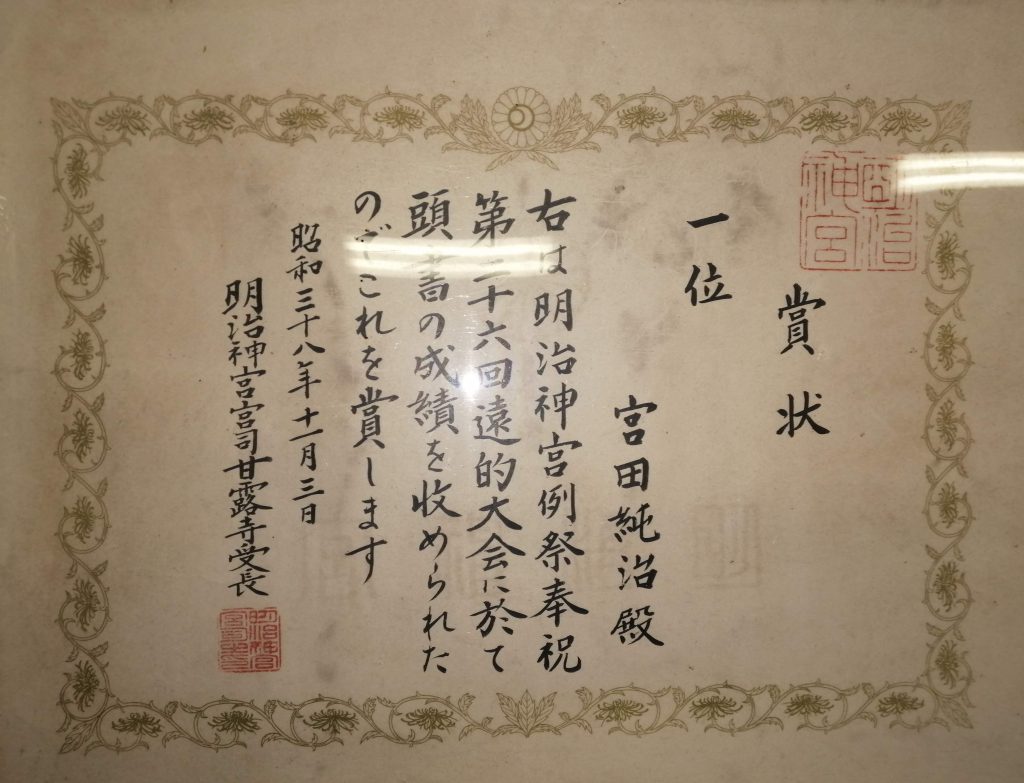 明治神宮
賞状
一位
宮田純治殿
右は明治神宮例祭奉祝
第二十六回遠的大会に於て
頭書の成績を收められた
のでこれを賞します
昭和三十八年十一月三日
明治神宮宮司甘露寺受長